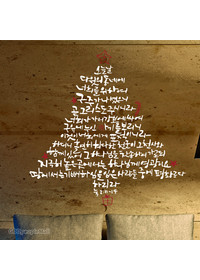 오늘날
다윗의 동네에
너희를 위하여
구주가 나셨으니
곧 그리스도 주시니라
너희가 가서 강보에 싸여
구유에 누인 아기를 보리니
이것이 너희에게 표적이니라
하더니 홀연히 허다한 천군이 그 천사와
함께 있어 하나님을 찬송하여 가로되
지극히 높은 곳에서는 하나님께 영광이요
땅에서는 기뻐하심을 입은 사람들 중에 평화로다
하니라